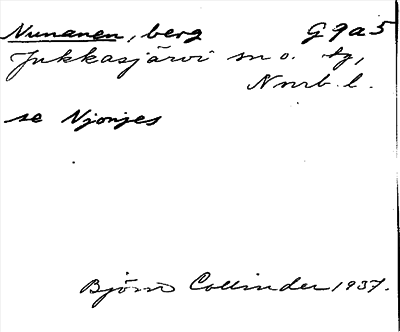 Nunanen, berg G 9 a 5
Jukkasjärvi sn o. tg,
Nnrb. l.
se Njonjes
Björn Collinder 1937.